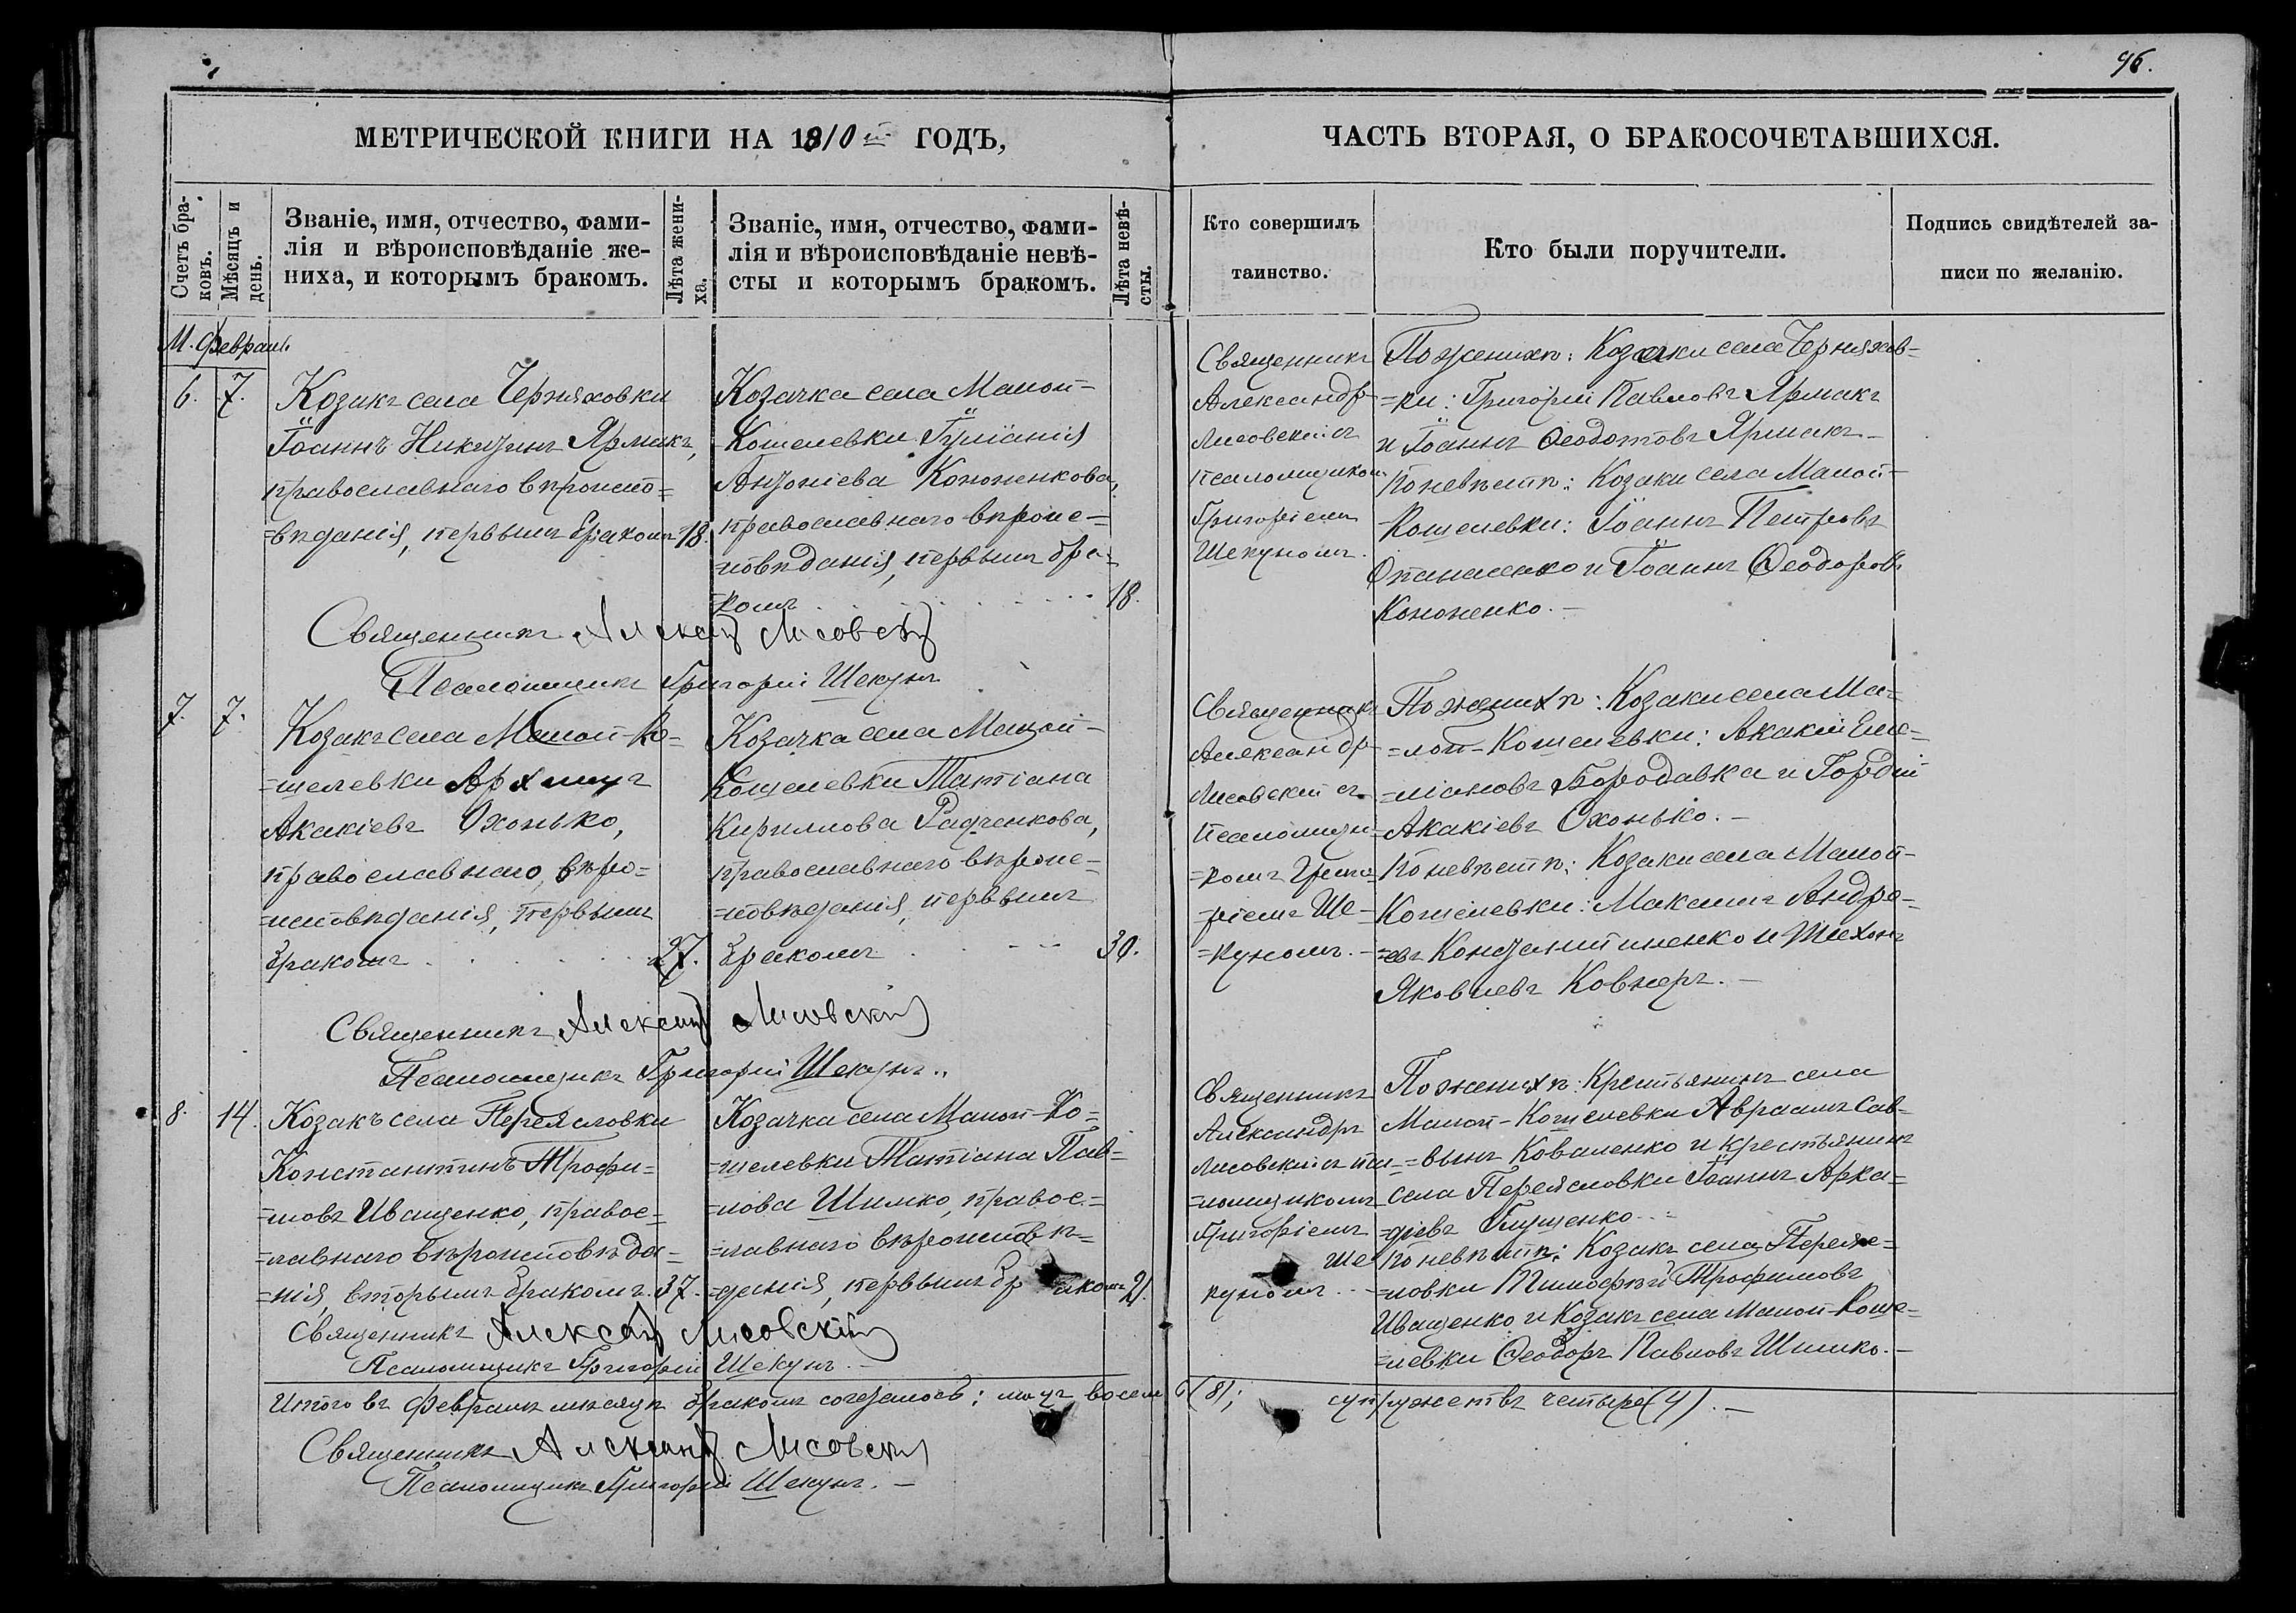 96.
МЕТРИЧЕСКОЙ КНИГИ НА 1910й ГОДЪ,
ЧАСТЬ ВТОРАЯ, О БРАКОСОЧЕТАВШИХСЯ.
Счетъ бра-
ковъ.
Мѣсяцъ и
день.
Званіе, имя, отчество, фами-
лія и вѣроисповѣданіе же-
ниха, и которымъ бракомъ.
Лѣта жени-
ха.
Званіе, имя, отчество, фами-
лія и вѣроисповѣданіе невѣ-
сты и которымъ бракомъ.
Лѣта невѣ-
сты.
Кто совершилъ
таинство.
Кто были поручители.
Подпись свидѣтелей за-
писи по желанію.
М. Февраль
6. 7.
Козакъ села Черняховки
Іоаннъ Никитинъ Ярмакъ,
православнаго вѣроиспо=
=вѣданія, первымъ бракомъ 18.
Козачка села Малой-
Кошелевки Іуліанія
Антоніева Кононенкова,
православнаго вѣроис=
=повѣданія, первымъ бра=
=комъ 18.
Священникъ
Александръ
Лисовскій съ
псаломщикомъ
Григоріемъ
Шекуномъ.
По женихѣ: Козаки села Черняхов=
=ки: Григорій Павловъ Ярмакъ
и Іоаннъ Ѳеодотовъ Ярмакъ -
По невѣстѣ: Козаки села Малой-
Кошелевки: Іоаннъ Петровъ
Опанасенко и Іоаннъ Ѳеодоровъ
Кононенко. -
Священникъ Александръ Лисовскій
Псаломщикъ Григорій Шекунъ
7. 7.
Козакъ села Малой-Ко=
=шелевки Архиппъ
Акакіевъ Охонько,
православнаго вѣро=
=исповѣданія, первымъ
бракомъ 27.
Козачка села Малой-
Кошелевки Татіана
Кириллова Радченкова,
православнаго вѣроис=
=повѣданія, первымъ
бракомъ 30.
Священникъ
Александръ
Лисовскій съ
псаломщи=
=комъ Григо=
=ріемъ Ше=
=куномъ. -
По женихѣ: Козаки села Ма=
=лой-Кошелевки: Акакій Еме=
=ліановъ Бородавка и Гордій
Акакіевъ Охонько. -
По невѣстѣ: Козаки села Малой-
Кошелевки: Максимъ Андре=
=евъ и Тихонъ
Яковлевъ Ковнеръ. -
Священникъ Александръ Лисовскій
Псаломщикъ Григорій Шекунъ.
8. 14.
Козакъ села Переясловки
Константинъ Трофи=
=мовъ Иващенко, правос=
=лавнаго вѣроисповѣда=
=нія, вторымъ бракомъ. 37.
Козачка села Малой-Ко=
=шелевки Татіана Пав=
=лова Шилко, правос=
=лавнаго вѣроисповѣ=
=данія, первымъ бракомъ 21.
Священникъ
Александръ
Лисовскій съ пса=
=ломщикомъ
Григоріемъ
Ше
куномъ. -
По женихѣ: Крестьянинъ села
Малой-Кошелевки Авраамъ Сав=
=винъ Коваленко и крестьянинъ
села Переясловки Іоаннъ Арка=
=діевъ Глущенко. -
По невѣстѣ: Козакъ села Переяс=
=ловки Тимоѳей Трофимовъ
Иващенко и Козакъ села Малой-Коше=
=левки Ѳеодоръ Павловъ Шилко. -
Священникъ Александръ Лисовскій
Псаломщикъ Григорій Шекунъ. -
Итого въ февралѣ мѣсяцѣ бракомъ сочеталось: лицъ восемь (8); супружествъ четыре (4). -
Священникъ Александръ Лисовскій
Псаломщикъ Григорій Шекунъ. -